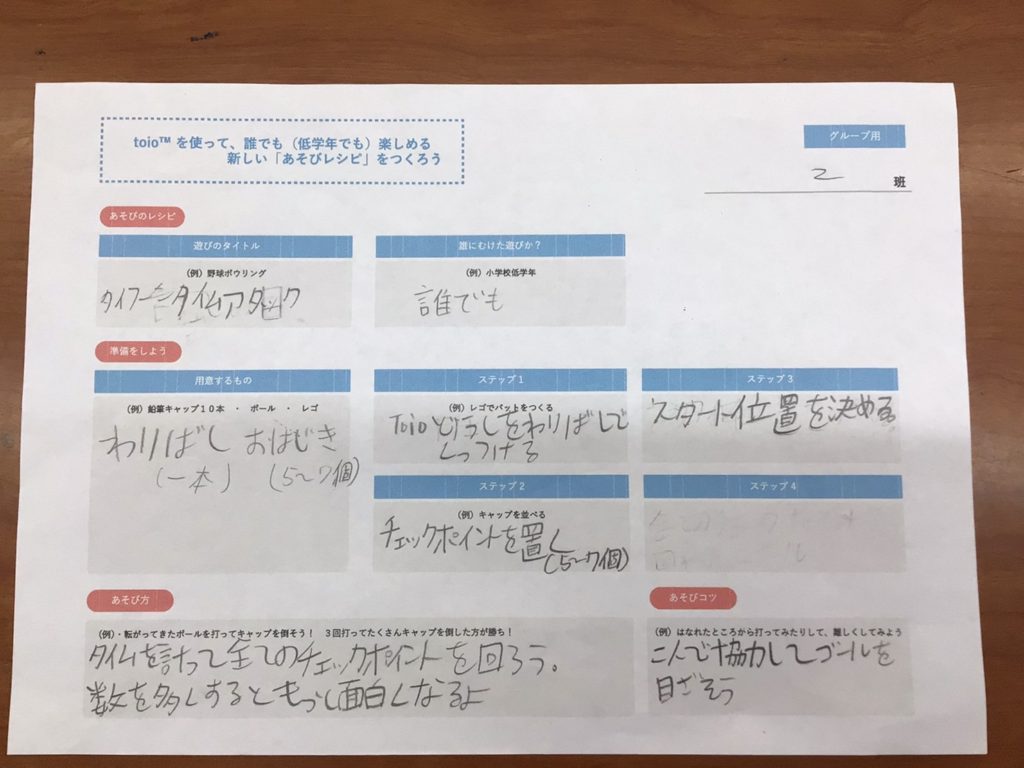 toio™ を使って、誰でも（低学年でも）楽しめる
新しい「あそびレシピ」をつくろう
グループ用
2 班
あそびのレシピ
遊びのタイトル
（例）野球ボウリング
タイムアタック
誰にむけた遊びか？
（例）小学校低学年
誰でも
準備をしよう
用意するもの
（例）鉛筆キャップ１０本 ・ ボール ・ レゴ
わりばし おはじき
（一本） （5〜7個）
ステップ１
（例）レゴでバットをつくる
toio どうしをわりばしで
くっつける
ステップ２
（例）キャップを並べる
チェックポイントを置く
（5〜7個）
ステップ３
スタート位置を決める
ステップ４
あそび方
（例）・転がってきたボールを打ってキャップを倒そう！ ３回打ってたくさんキャップを倒した方が勝ち！
タイムを計って全てのチェックポイントを回ろう。
数を多くするともっと面白くなるよ
あそびコツ
（例）はなれたところから打ってみたりして、難しくしてみよう
二人で協力してゴールを
目ざそう